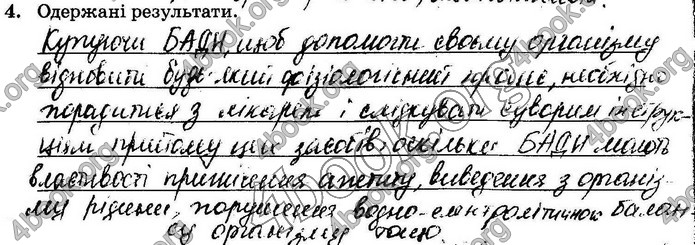 4. Одержані результати.
Купуючи БАДН, щоб допомогти своєму організму
відновити будь-який фізіологічний процес, необхідно
порадитися з лікарем і слідкувати суворим інструк-
ціям прийому цих засобів, оскільки БАДН мають
властивості пригнічення апетиту, виведення з організ-
му рідини, порушення водно-електролітичного балан-
су організму тощо
4book.org